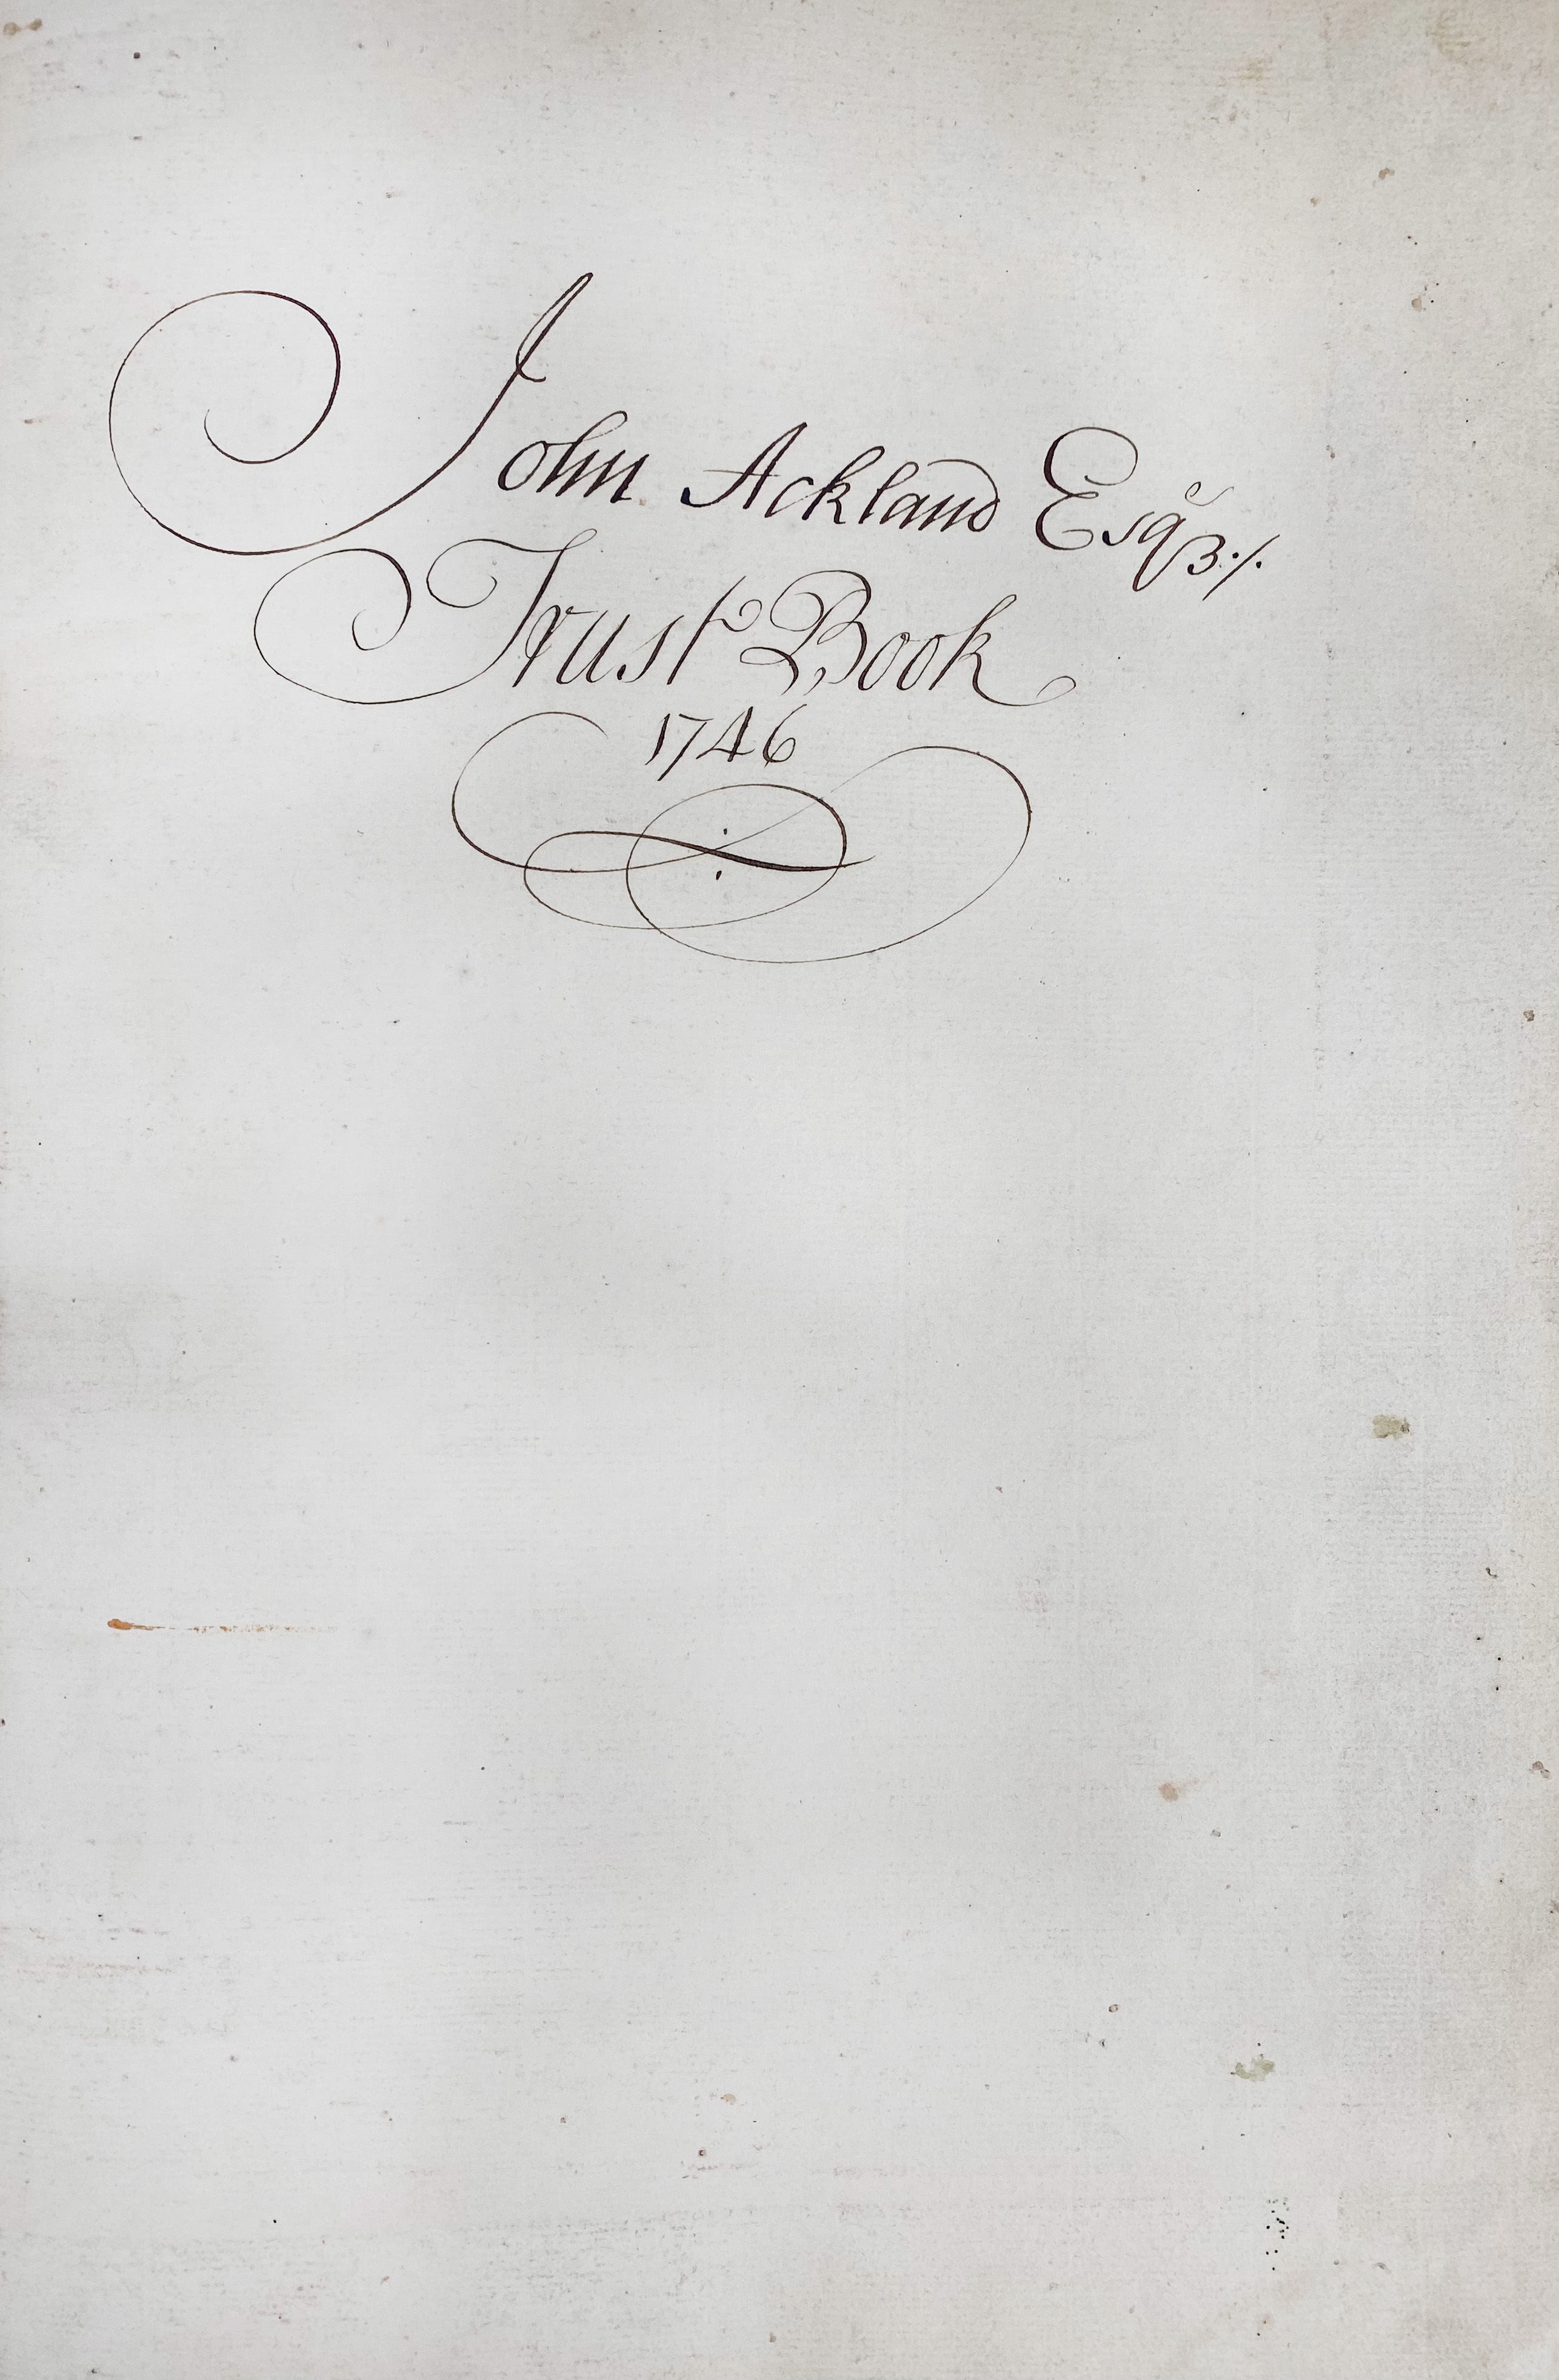 John Ackland Esqr:/.
Trust Book
1746